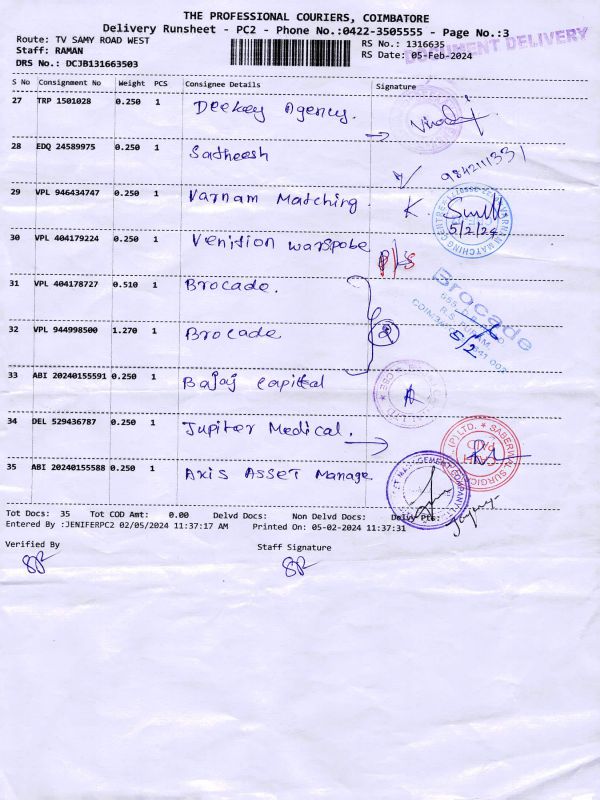 THE PROFESSIONAL COURIERS, COIMBATORE
Delivery Runsheet - PC2 - Phone No.:0422-3505555 - Page No.:3
Route: TV SAMY ROAD WEST
RS No.: 1316635
DOCUMENT DELIVERY
Staff: RAMAN
RS Date: 05-Feb-2024
DRS No.: DCJB131663503
S No Consignment No Weight PCS Consignee Details Signature
27 TRP 1501028 0.250 1 Deekey Agency.
28 EDQ 24589975 0.250 1 Satheesh 9842111331
29 VPL 946434747 0.250 1 Varnam Matching. K
VARNAM MATCHING CENTRE
5/2/24
30 VPL 404179224 0.250 1 Venition warspobe P/S
31 VPL 404178727 0.510 1 Brocade.
Brocade
R.S. PURAM
32 VPL 944998500 1.270 1 Brocade
5/2
33 ABI 20240155591 0.250 1 Bajaj Capital
34 DEL 529436787 0.250 1 Jupiter Medical.
(P) LTD. * SABERWAL SURGICAL
35 ABI 20240155588 0.250 1 Axis Asset Manage
Tot Docs: 35 Tot COD Amt: 0.00 Delvd Docs: Non Delvd Docs: Delvy Pct:
Entered By :JENIFERPC2 02/05/2024 11:37:17 AM Printed On: 05-02-2024 11:37:31
Verified By Staff Signature